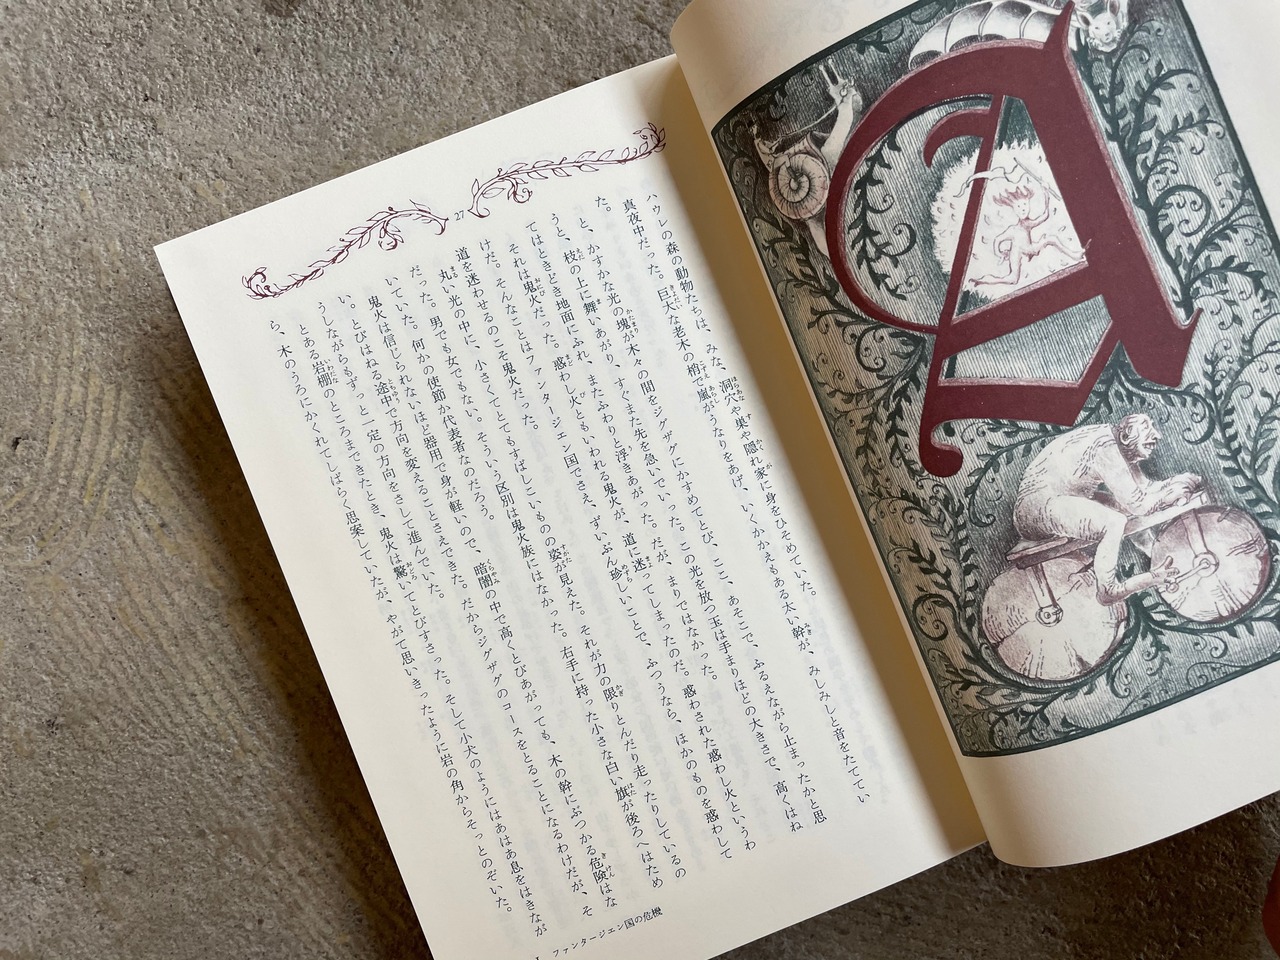 A
27
ハウレの森の動物たちは、みな、洞穴や巣や隠れ家に身をひそめていた。
真夜中だった。巨大な老木の梢で嵐がうなりをあげ、いくかかえもある太い幹が、みしみしと音をたててい
た。
と、かすかな光の塊が木々の間をジグザグにかすめてとび、ここ、あそこで、ふるえながら止まったかと思
うと、枝の上に舞いあがり、すぐまた先を急いでいった。この光を放つ玉は手まりほどの大きさで、高くはね
てはときどき地面にふれ、またふわりと浮きあがった。だが、まりではなかった。
それは鬼火だった。惑わし火ともいわれる鬼火が、道に迷ってしまったのだ。惑わされた惑わし火というわ
けだ。そんなことはファンタージエン国でさえ、ずいぶん珍しいことで、ふつうなら、ほかのものを惑わして
道を迷わせるのこそ鬼火だった。
丸い光の中に、小さくてとてもすばしこいものの姿が見えた。それが力の限りとんだり走ったりしているの
だった。男でも女でもない。そういう区別は鬼火族にはなかった。右手に持った小さな白い旗が後ろへはため
いていた。何かの使節か代表者なのだろう。
鬼火は信じられないほど器用で身が軽いので、暗闇の中で高くとびあがっても、木の幹にぶつかる危険はな
い。とびはねる途中で方向を変えることさえできた。だからジグザグのコースをとることになるわけだが、そ
うしながらもずっと一定の方向をさして進んでいた。
とある岩棚のところまできたとき、鬼火は驚いてとびすさった。そして小犬のようにはあはあ息をはきなが
ら、木のうろにかくれてしばらく思案していたが、やがて思いきったように岩の角からそっとのぞいた。
I　ファンタージエン国の危機